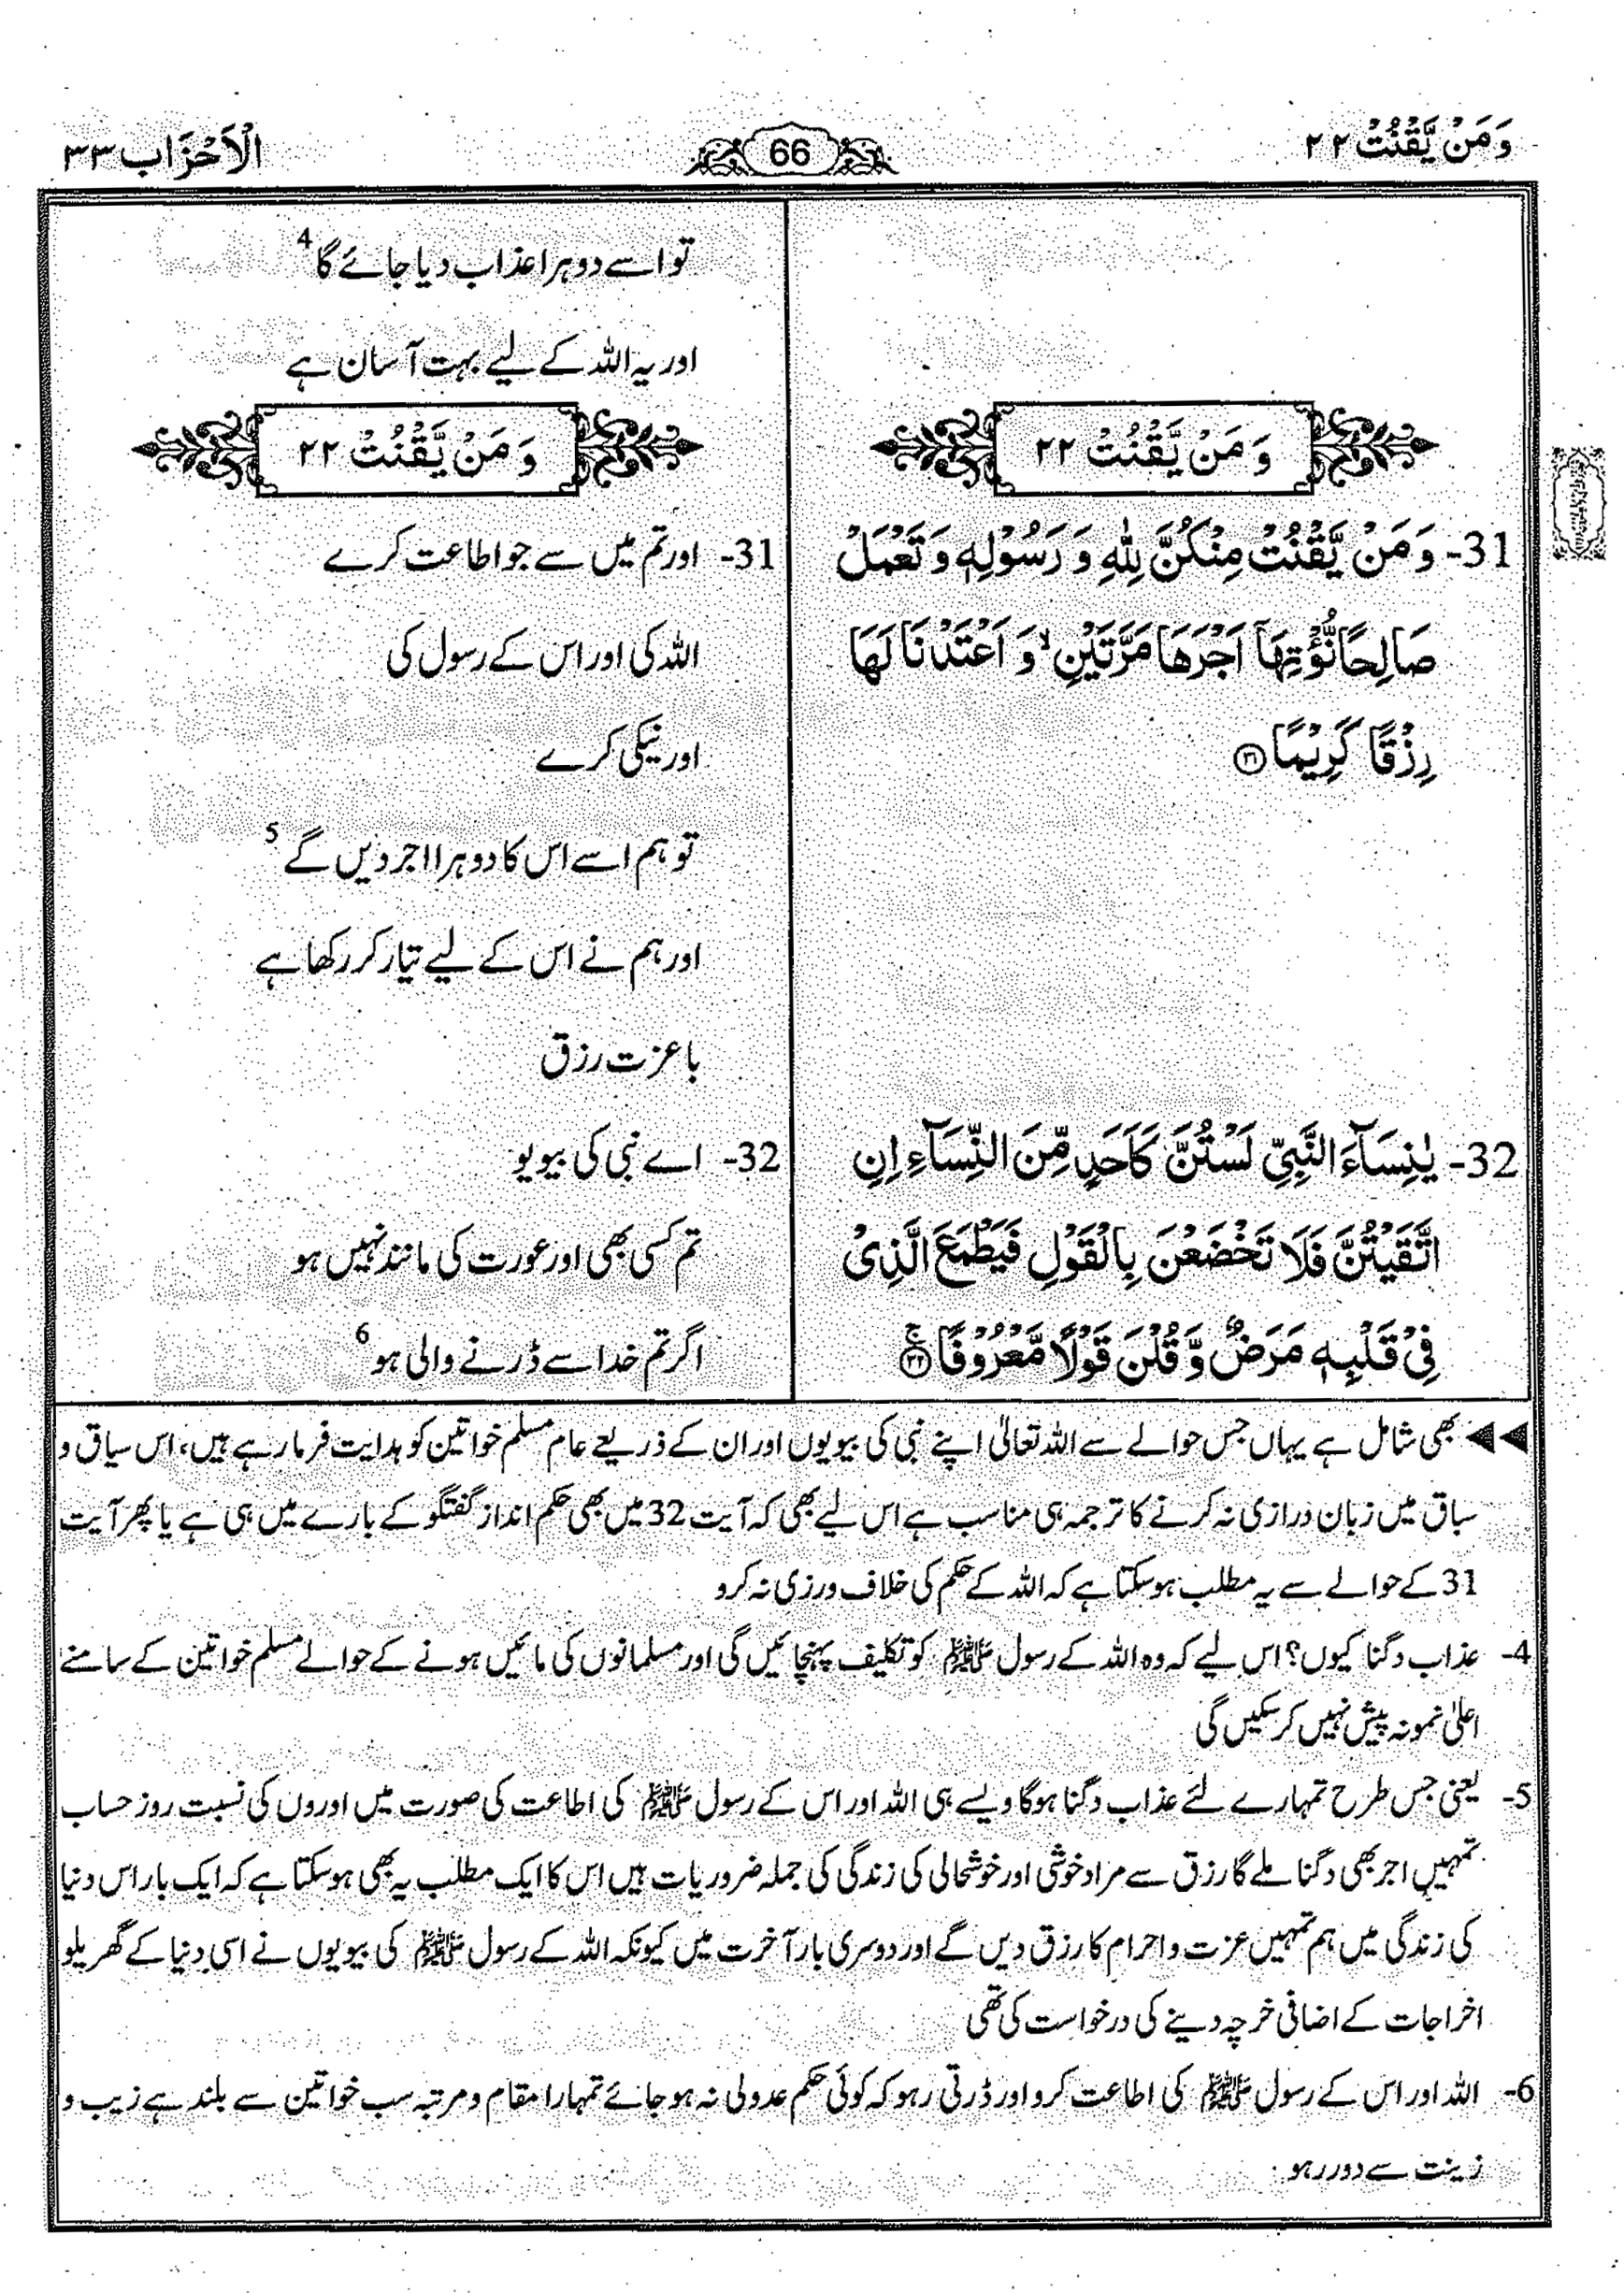 وَمَنْ يَّقْنُتْ ٢٢
66
الْاَحْزَاب ٣٣
وَ مَنْ يَّقْنُتْ ٢٢
31- وَ مَنْ يَّقْنُتْ مِنْكُنَّ لِلّٰهِ وَ رَسُوْلِهٖ وَ تَعْمَلْ
صَالِحًا نُّؤْتِهَاۤ اَجْرَهَا مَرَّتَيْنِ ۙ وَ اَعْتَدْنَا لَهَا
رِزْقًا كَرِيْمًا ۝٣١
32- يٰنِسَآءَ النَّبِيِّ لَسْتُنَّ كَاَحَدٍ مِّنَ النِّسَآءِ اِنِ
اتَّقَيْتُنَّ فَلَا تَخْضَعْنَ بِالْقَوْلِ فَيَطْمَعَ الَّذِيْ
فِيْ قَلْبِهٖ مَرَضٌ وَّ قُلْنَ قَوْلًا مَّعْرُوْفًا ۚ۝٣٢
تو اسے دوہرا عذاب دیا جائے گا 4
اور یہ اللہ کے لیے بہت آسان ہے
وَ مَنْ يَّقْنُتْ ٢٢
31- اور تم میں سے جو اطاعت کرے
اللہ کی اور اس کے رسول کی
اور نیکی کرے
تو ہم اسے اس کا دوہرا اجر دیں گے 5
اور ہم نے اس کے لیے تیار کر رکھا ہے
باعزت رزق
32- اے نبی کی بیویو
تم کسی بھی اور عورت کی مانند نہیں ہو
اگر تم خدا سے ڈرنے والی ہو 6
◄◄ بھی شامل ہے یہاں جس حوالے سے اللہ تعالیٰ اپنے نبی کی بیویوں اور ان کے ذریعے عام مسلم خواتین کو ہدایت فرما رہے ہیں، اس سیاق و
سباق میں زبان درازی نہ کرنے کا ترجمہ ہی مناسب ہے اس لیے بھی کہ آیت 32 میں بھی حکم انداز گفتگو کے بارے میں ہی ہے یا پھر آیت
31 کے حوالے سے یہ مطلب ہو سکتا ہے کہ اللہ کے حکم کی خلاف ورزی نہ کرو
4- عذاب دگنا کیوں؟ اس لیے کہ وہ اللہ کے رسول ﷺ کو تکلیف پہنچائیں گی اور مسلمانوں کی مائیں ہونے کے حوالے مسلم خواتین کے سامنے
اعلیٰ نمونہ پیش نہیں کر سکیں گی
5- یعنی جس طرح تمہارے لئے عذاب دگنا ہوگا ویسے ہی اللہ اور اس کے رسول ﷺ کی اطاعت کی صورت میں اوروں کی نسبت روز حساب
تمہیں اجر بھی دگنا ملے گا رزق سے مراد خوشی اور خوشحالی کی زندگی کی جملہ ضروریات ہیں اس کا ایک مطلب یہ بھی ہو سکتا ہے کہ ایک بار اس دنیا
کی زندگی میں ہم تمہیں عزت و احرام کا رزق دیں گے اور دوسری بار آخرت میں کیونکہ اللہ کے رسول ﷺ کی بیویوں نے اسی دنیا کے گھریلو
اخراجات کے اضافی خرچہ دینے کی درخواست کی تھی
6- اللہ اور اس کے رسول ﷺ کی اطاعت کرو اور ڈرتی رہو کہ کوئی حکم عدولی نہ ہو جائے تمہارا مقام و مرتبہ سب خواتین سے بلند ہے زیب و
زینت سے دور رہو